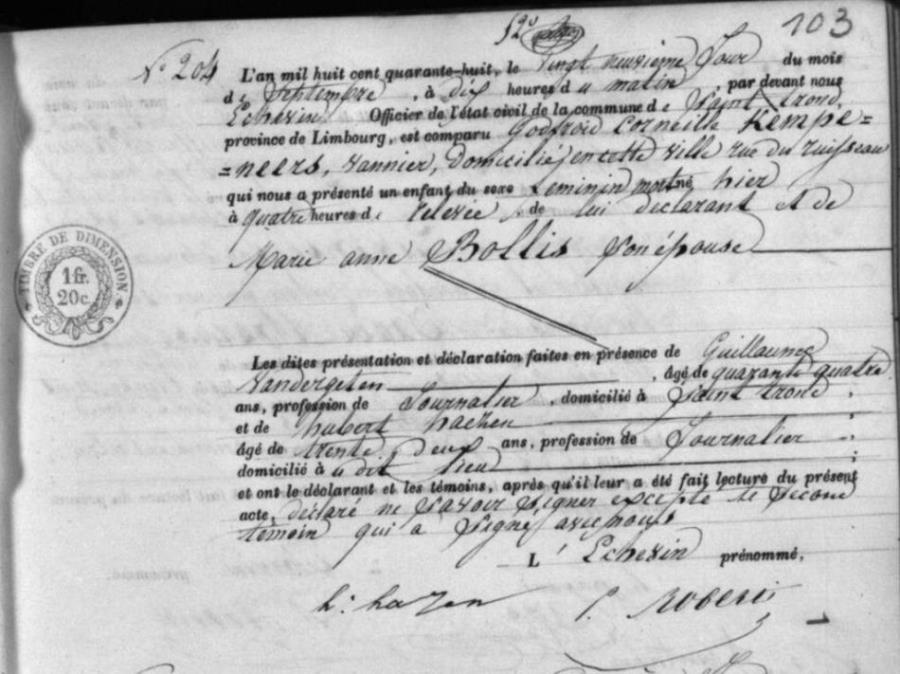 52e 103
N° 204
L'an mil huit cent quarante-huit, le vingt neuvieme Jour du mois
de Septembre, à dix heures du matin, par devant nous
Echevin Officier de l'état civil de la commune de Saint Trond,
province de Limbourg, est comparu Godfroid Corneille Kempe=
=neers, vannier, domicilié en cette ville rue du ruisseau
qui nous a présenté un enfant du sexe feminin mort né hier
à quatre heures de relevée, de lui déclarant et de
Marie anne Bollis son épouse
TIMBRE DE DIMENSION
1 fr.
20 c.
Les dites présentation et déclaration faites en présence de Guillaume
Vandergeten, âgé de quarante quatre
ans, profession de Journalier, domicilié à Saint trond;
et de hubert hachen
âgé de trente deux ans, profession de Journalier;
domicilié à u dit lieu;
et ont le déclarant et les témoins, après qu'il leur a été fait lecture du présent
acte, déclaré ne savoir signer excepté le second
témoin qui a signé avec nous
L'Echevin prénommé,
h: hazen